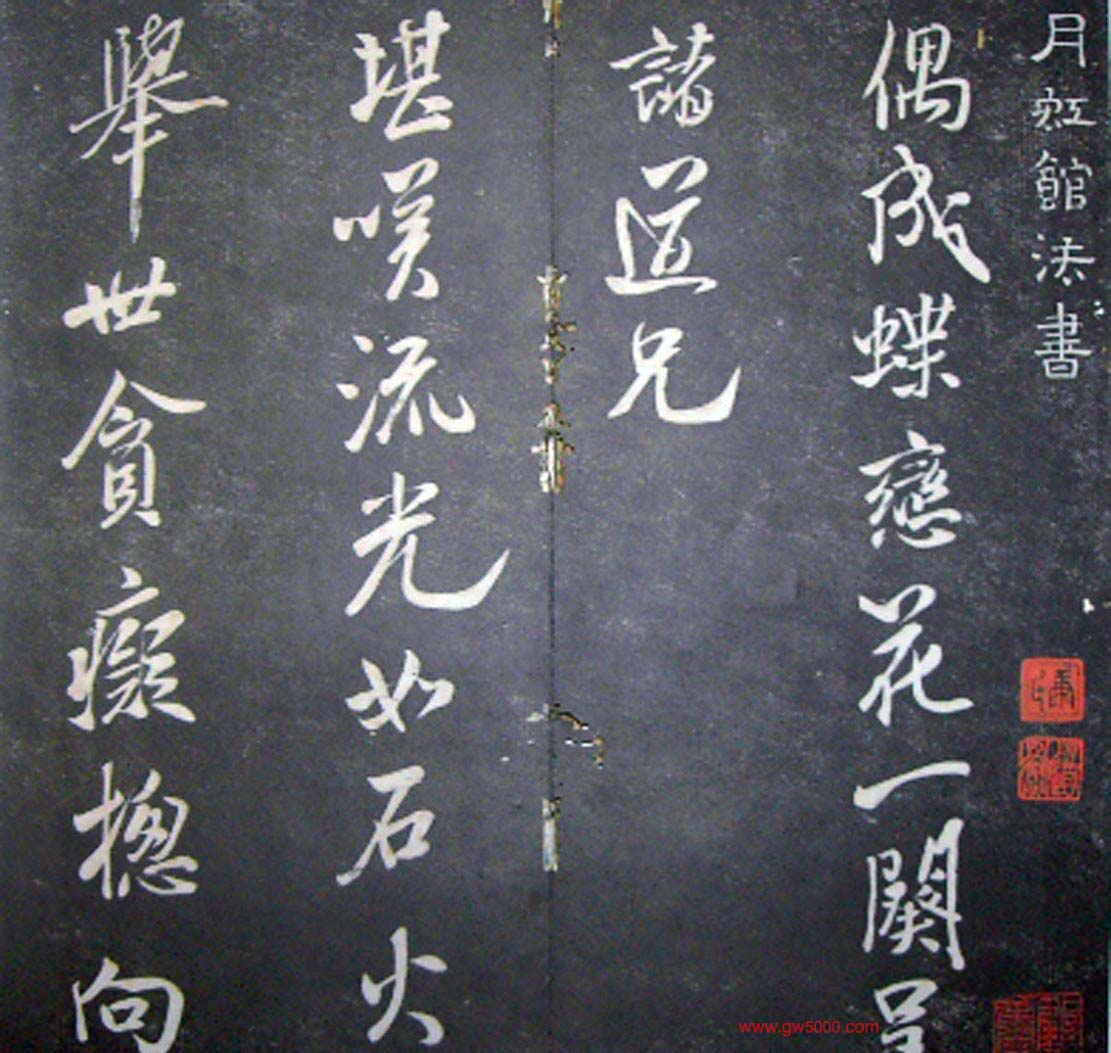 月虹館法書
偶成蝶戀花一闋呈
諸道兄
堪咲流光如石火
舉世貪癡揔向
www.gw5000.com